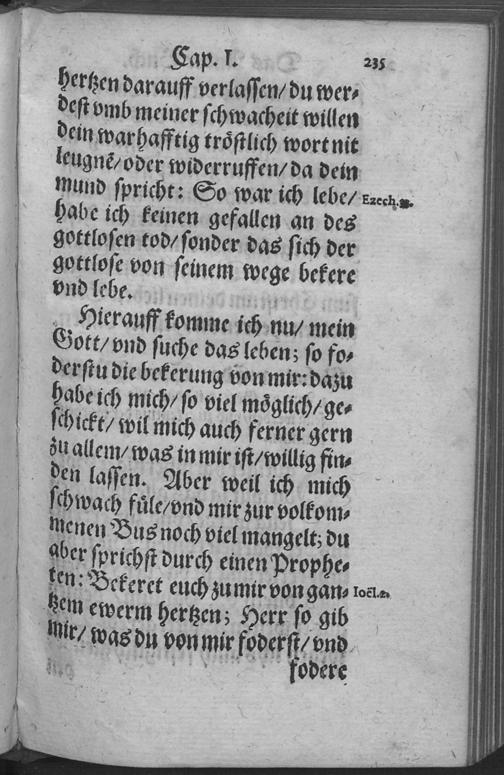 Cap. I. 235
hertzen darauff verlassen/ du wer⸗
dest vmb meiner schwacheit willen
dein warhafftig tröstlich wort nit
leugnē/ oder widerruffen/ da dein
mund spricht: So war ich lebe/ Ezech.
habe ich keinen gefallen an des
gottlosen tod/ sonder das sich der
gottlose von seinem wege bekere
vnd lebe.
Hierauff komme ich nu/ mein
Gott/ vnd suche das leben; so fo⸗
derstu die bekerung von mir: dazu
habe ich mich/ so viel möglich/ ge⸗
schickt/ wil mich auch ferner gern
zu allem/ was in mir ist/ willig fin⸗
den lassen. Aber weil ich mich
schwach füle/ vnd mir zur volkom⸗
menen Bus noch viel mangelt; du
aber sprichst durch einen Prophe⸗
ten: Bekeret euch zu mir von gan⸗ Ioël.2.
tzem ewerm hertzen; Herr so gib
mir/ was du von mir foderst/ vnd
fodere